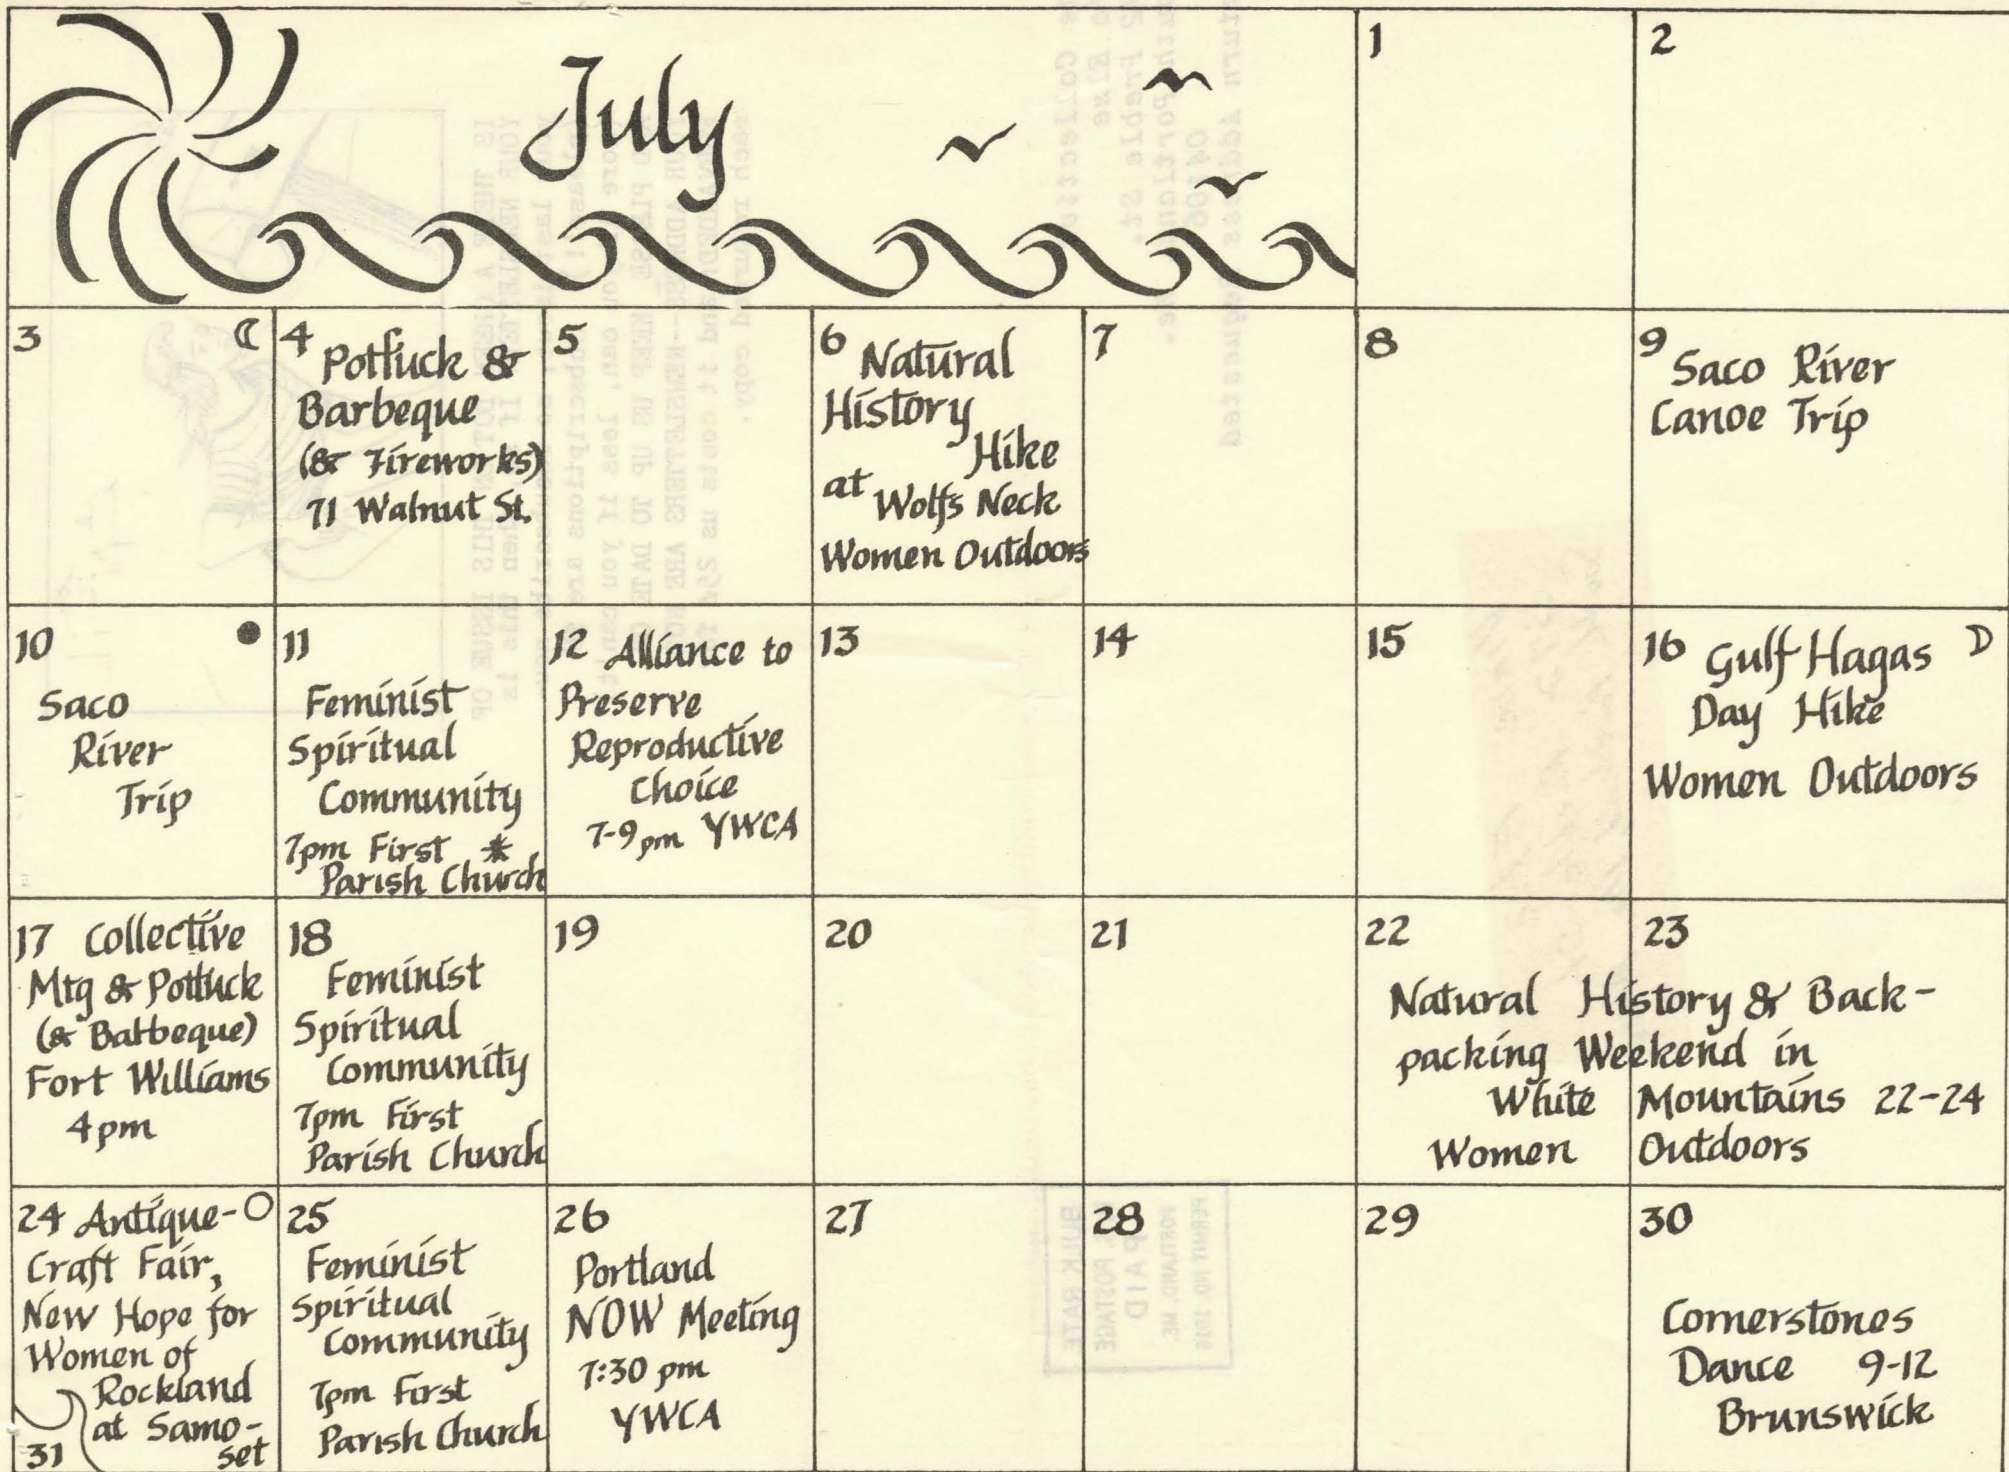 July
1
2
3
4 Potluck &
Barbeque
(& Fireworks)
71 Walnut St.
5
6 Natural
History
Hike
at Wolfs Neck
Women Outdoors
7
8
9 Saco River
Canoe Trip
10
Saco
River
Trip
11
Feminist
Spiritual
Community
7pm First *
Parish Church
12 Alliance to
Preserve
Reproductive
Choice
7-9pm YWCA
13
14
15
16 Gulf Hagas
Day Hike
Women Outdoors
17 Collective
Mtg & Potluck
(& Barbeque)
Fort Williams
4pm
18
Feminist
Spiritual
Community
7pm First
Parish Church
19
20
21
22
23
Natural History & Back-
packing Weekend in
White Mountains 22-24
Women Outdoors
24 Antique-
Craft Fair,
New Hope for
Women of
Rockland
at Samo-
set
31
25
Feminist
Spiritual
Community
7pm First
Parish Church
26
Portland
NOW Meeting
7:30 pm
YWCA
27
28
29
30
Cornerstones
Dance 9-12
Brunswick